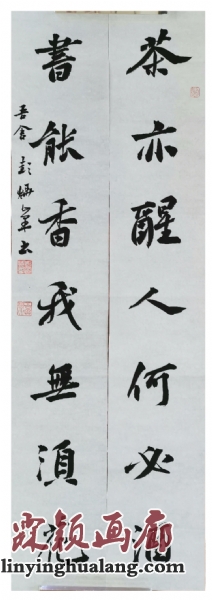 茶亦醒人何必酒
書能香我無須
吾舍 彭
畫廊
www.linyinghualang.com